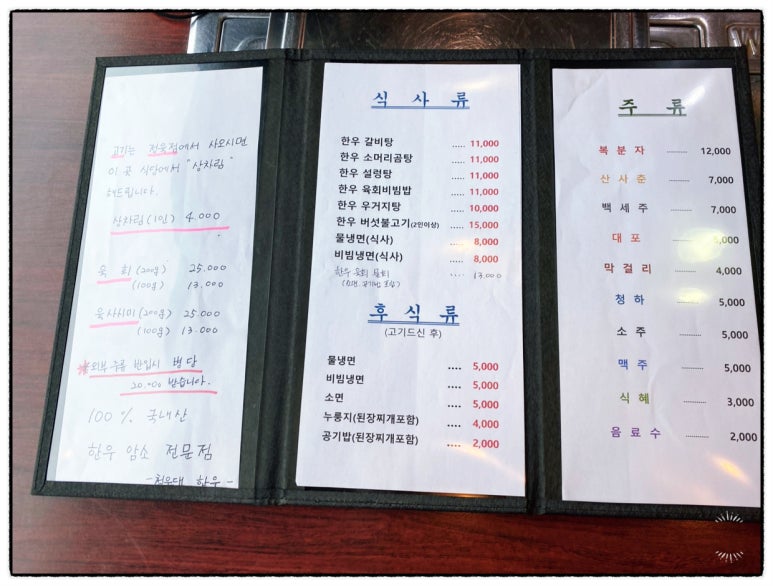 고기는 정육점에서 사오시면
이 곳 식당에서 "상차림"
해드립니다.
상차림(1인) 4.000
육 회 (200g) 25.000
(100g) 13.000
육사시미 (200g) 25.000
(100g) 13.000
※외부 주류 반입시 병당
20.000 받습니다.
100% 국내산
한우 암소 전문점
한우 -
식 사 류
한우 갈비탕 .... 11,000
한우 소머리곰탕 .... 11,000
한우 설렁탕 .... 11,000
한우 육회비빔밥 .... 11,000
한우 우거지탕 .... 10,000
한우 버섯불고기(2인이상) .... 15,000
물냉면(식사) .... 8,000
비빔냉면(식사) .... 8,000
한우 육회 물회 .... 13.000
후 식 류
(고기드신 후)
물냉면 .... 5,000
비빔냉면 .... 5,000
소면 .... 5,000
누룽지(된장찌개포함) .... 4,000
공기밥(된장찌개포함) .... 2,000
주 류
복 분 자 ........... 12,000
산 사 춘 ........... 7,000
백 세 주 ........... 7,000
대 포 ........... 5,000
막 걸 리 ........... 4,000
청 하 ........... 5,000
소 주 ........... 5,000
맥 주 ........... 5,000
식 혜 ........... 3,000
음 료 수 ........... 2,000